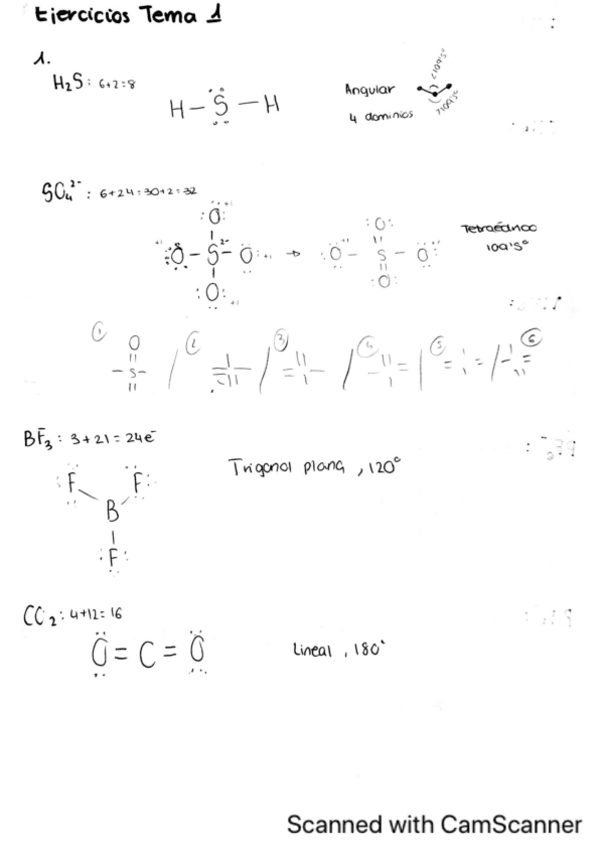 Ejercicios Tema 1
1.
H₂S: 6+2=8
H – S – H
Angular
4 dominios
<109'5°
>109'5°
SO₄²⁻ : 6+24=30+2=32
:O:
:O – S²⁻ – O:
:O:
→
:O:
:O – S – O:
:O:
Tetraédrico
109'5°
① O
– S –
② / ③ / ④ / ⑤ / ⑥
BF₃ : 3+21=24e⁻
:F: :F:
B
:F:
Trigonal plana, 120°
CO₂: 4+12=16
O = C = O
Lineal, 180°
Scanned with CamScanner